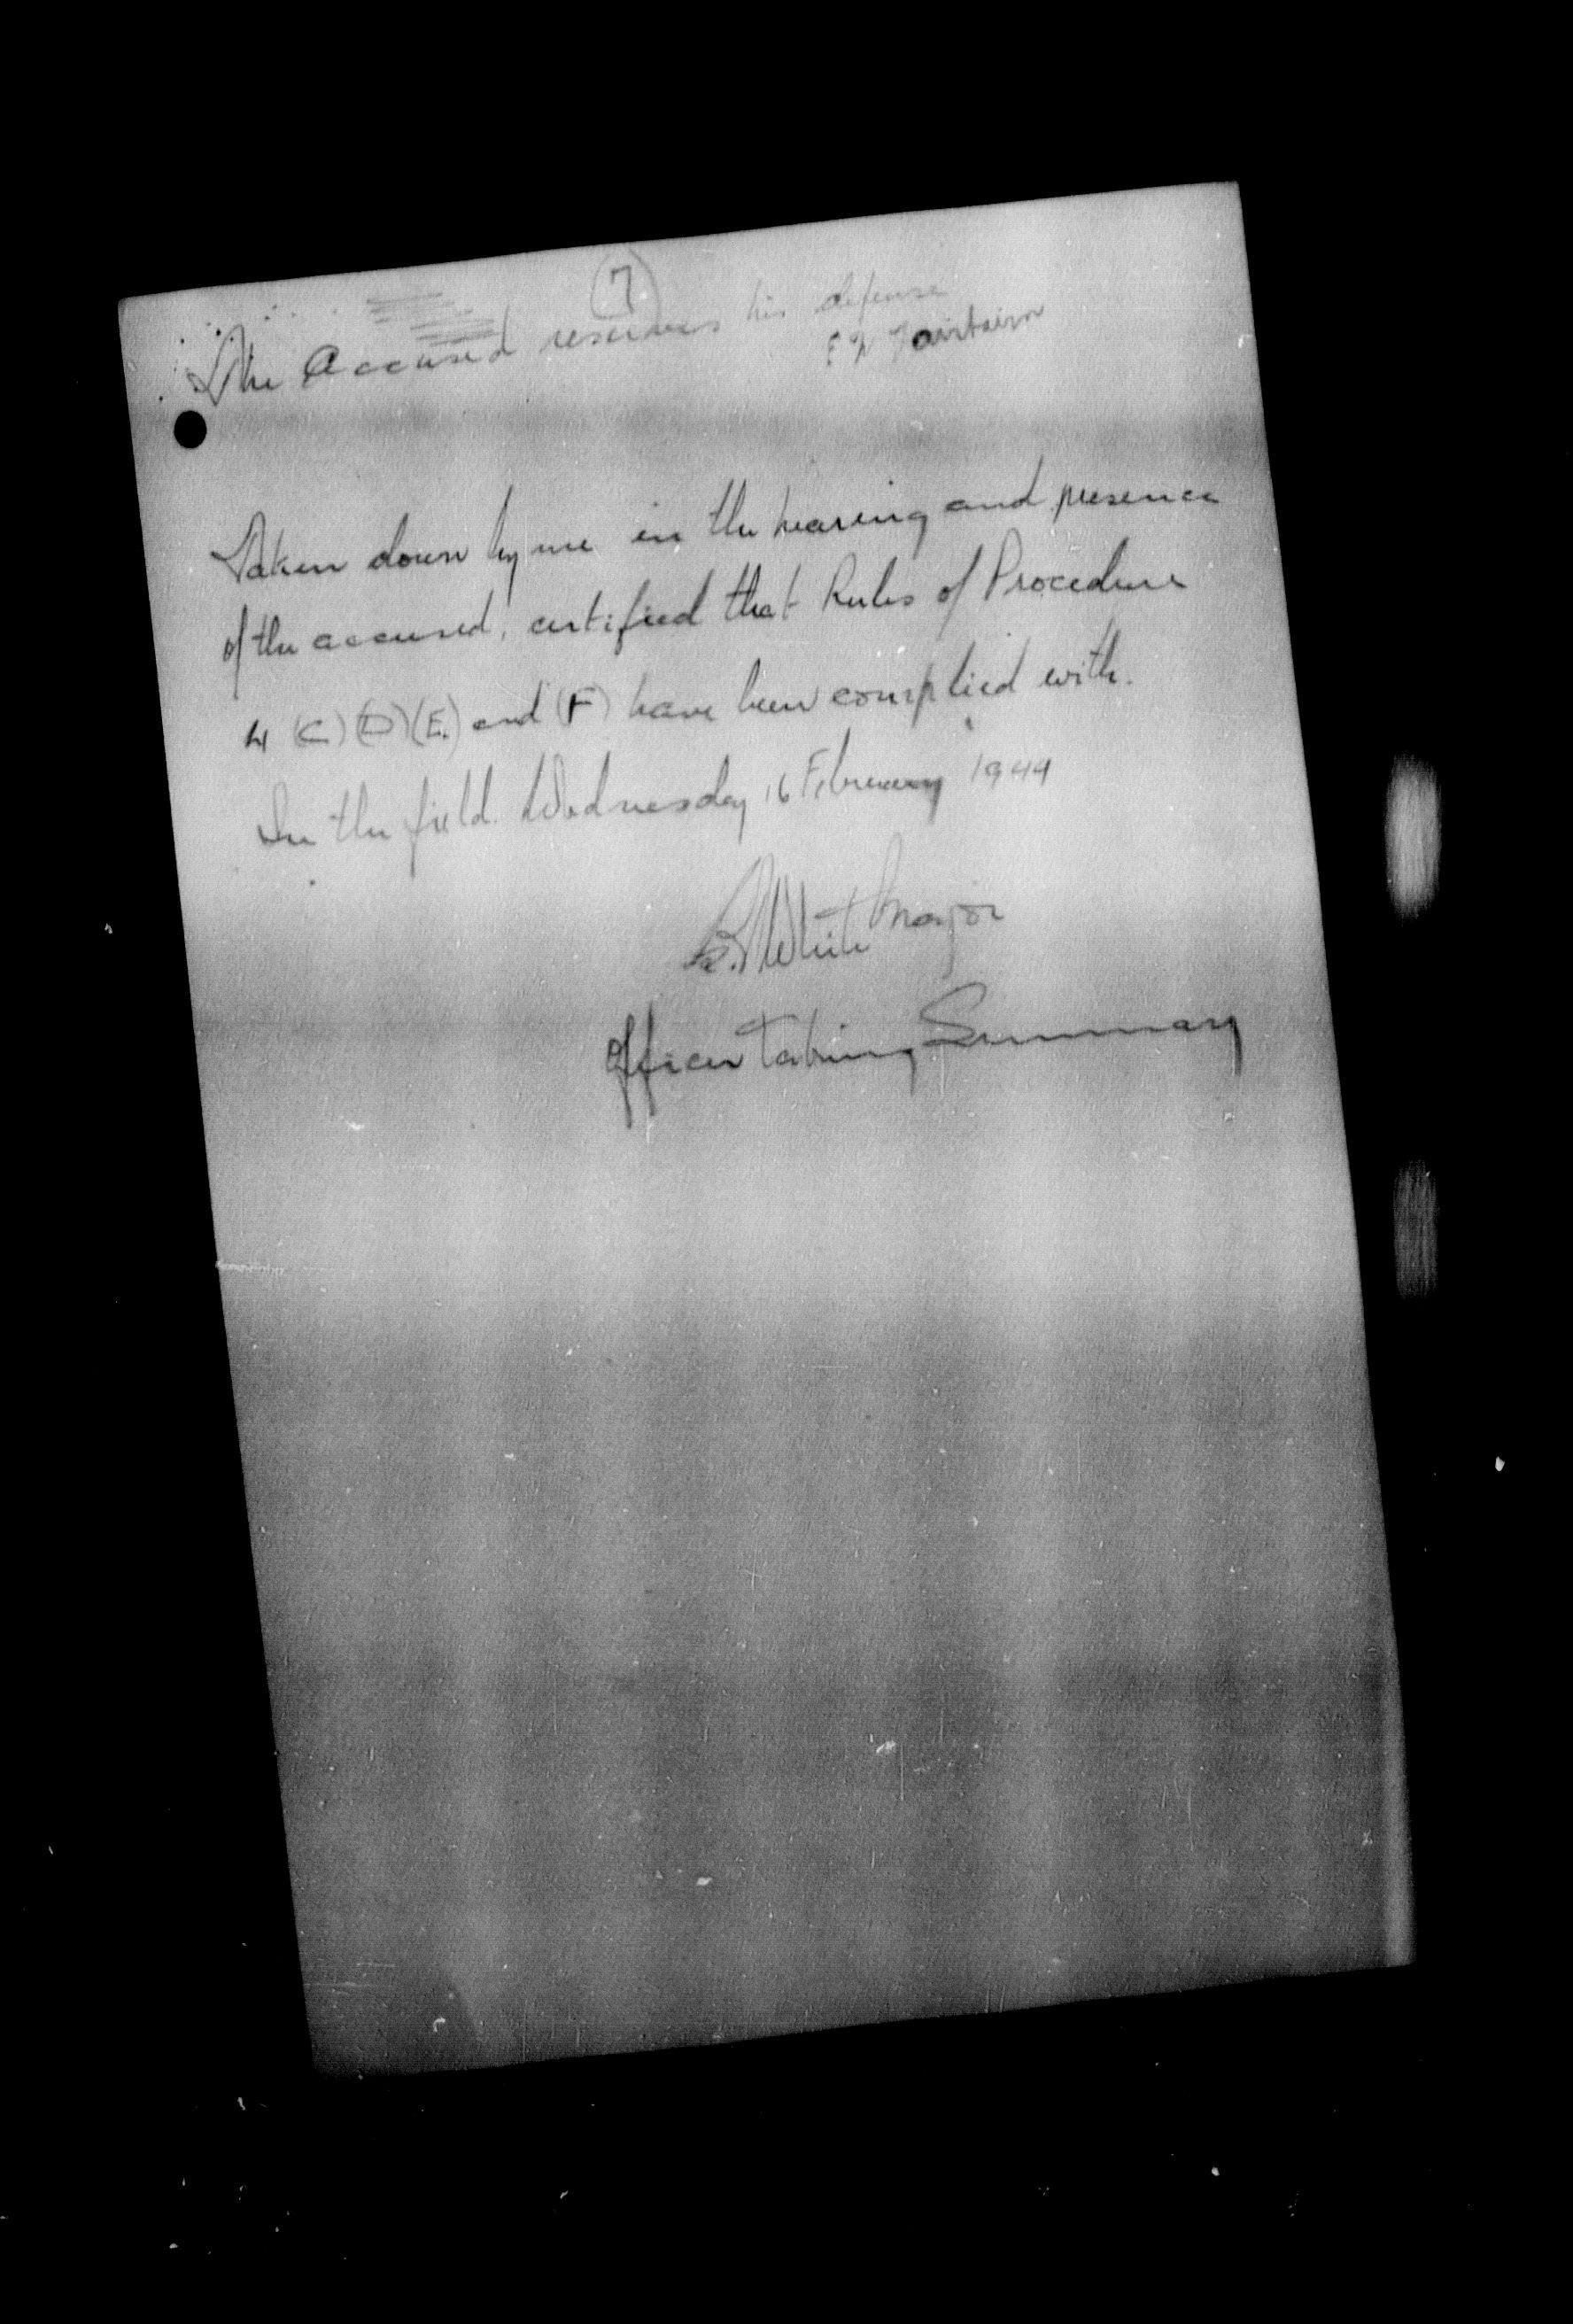 7
The Accused reserves his defense
Fairbairn
Taken down by me in the hearing and presence
of the accused, certified that Rules of Procedure
4 (C) (D) (E.) and (F) have been complied with.
In the field. Wednesday 16 February 1944
White Major
Officer Taking Summary